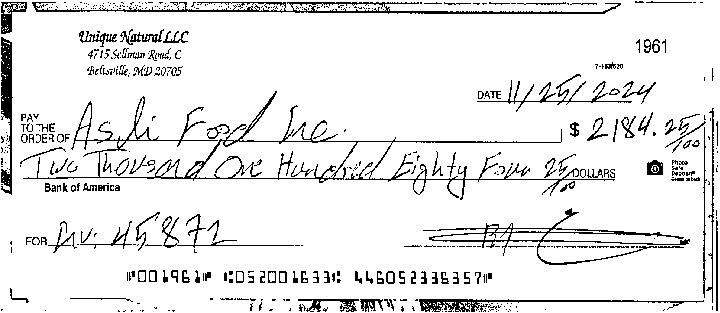 Unique Natural LLC
4715 Sellman Road, C
Beltsville, MD 20705
1961
DATE 11/25/2024
PAY TO THE ORDER OF Asli Food Inc. $ 2184.25/100
Two Thousand One Hundred Eighty Four 25/100 DOLLARS
Photo Safe Deposit
Bank of America
FOR Inv: 45871
⑈001961⑈ ⑆052001633⑆ 446052336357⑈